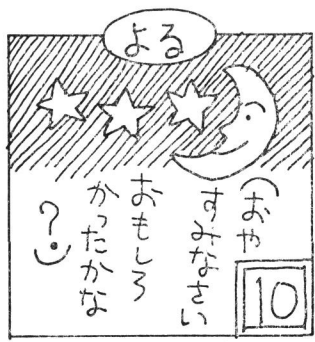 よる
おや
すみなさい
おもしろ
かったかな
?
10